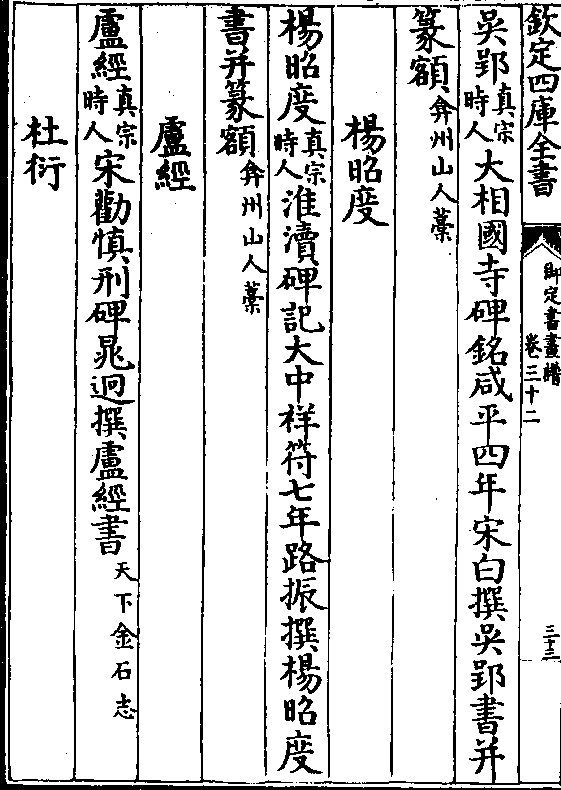 欽定四庫全書
御定書畫譜
卷三十二
三十三
吳郢真宗時人大相國寺碑銘咸平四年宋白撰吳郢書并
篆額弇州山人藁
楊昭度
楊昭度真宗時人淮瀆碑記大中祥符七年路振撰楊昭度
書并篆額弇州山人藁
盧經
盧經真宗時人宋勸慎刑碑晁迥撰盧經書天下金石志
杜衍